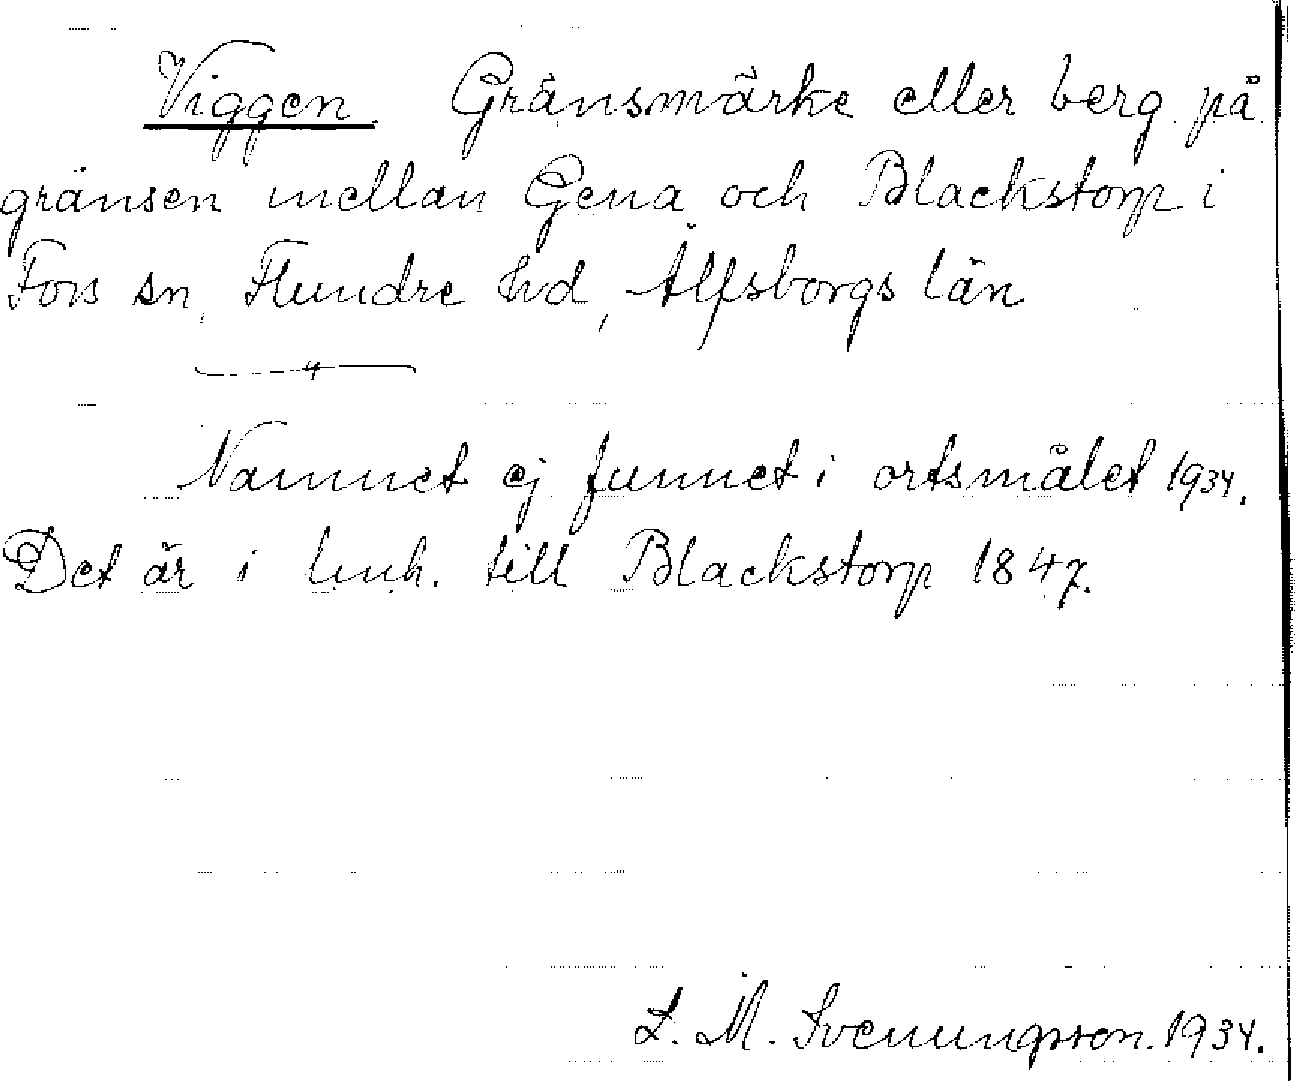 Viggen. Gränsmärke eller berg på
gränsen mellan Gena och Blackstorp i
Fors sn, Flundre hd, Älfsborgs län
— " —
Namnet ej funnet i ortsmålet 1934.
Det är i luh. till Blackstorp 1847.
L. M. Svenungsson. 1934.